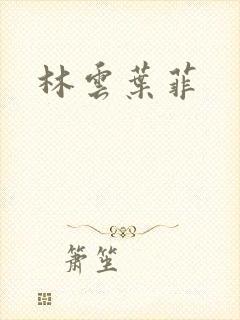 林雲葉菲
簫笙